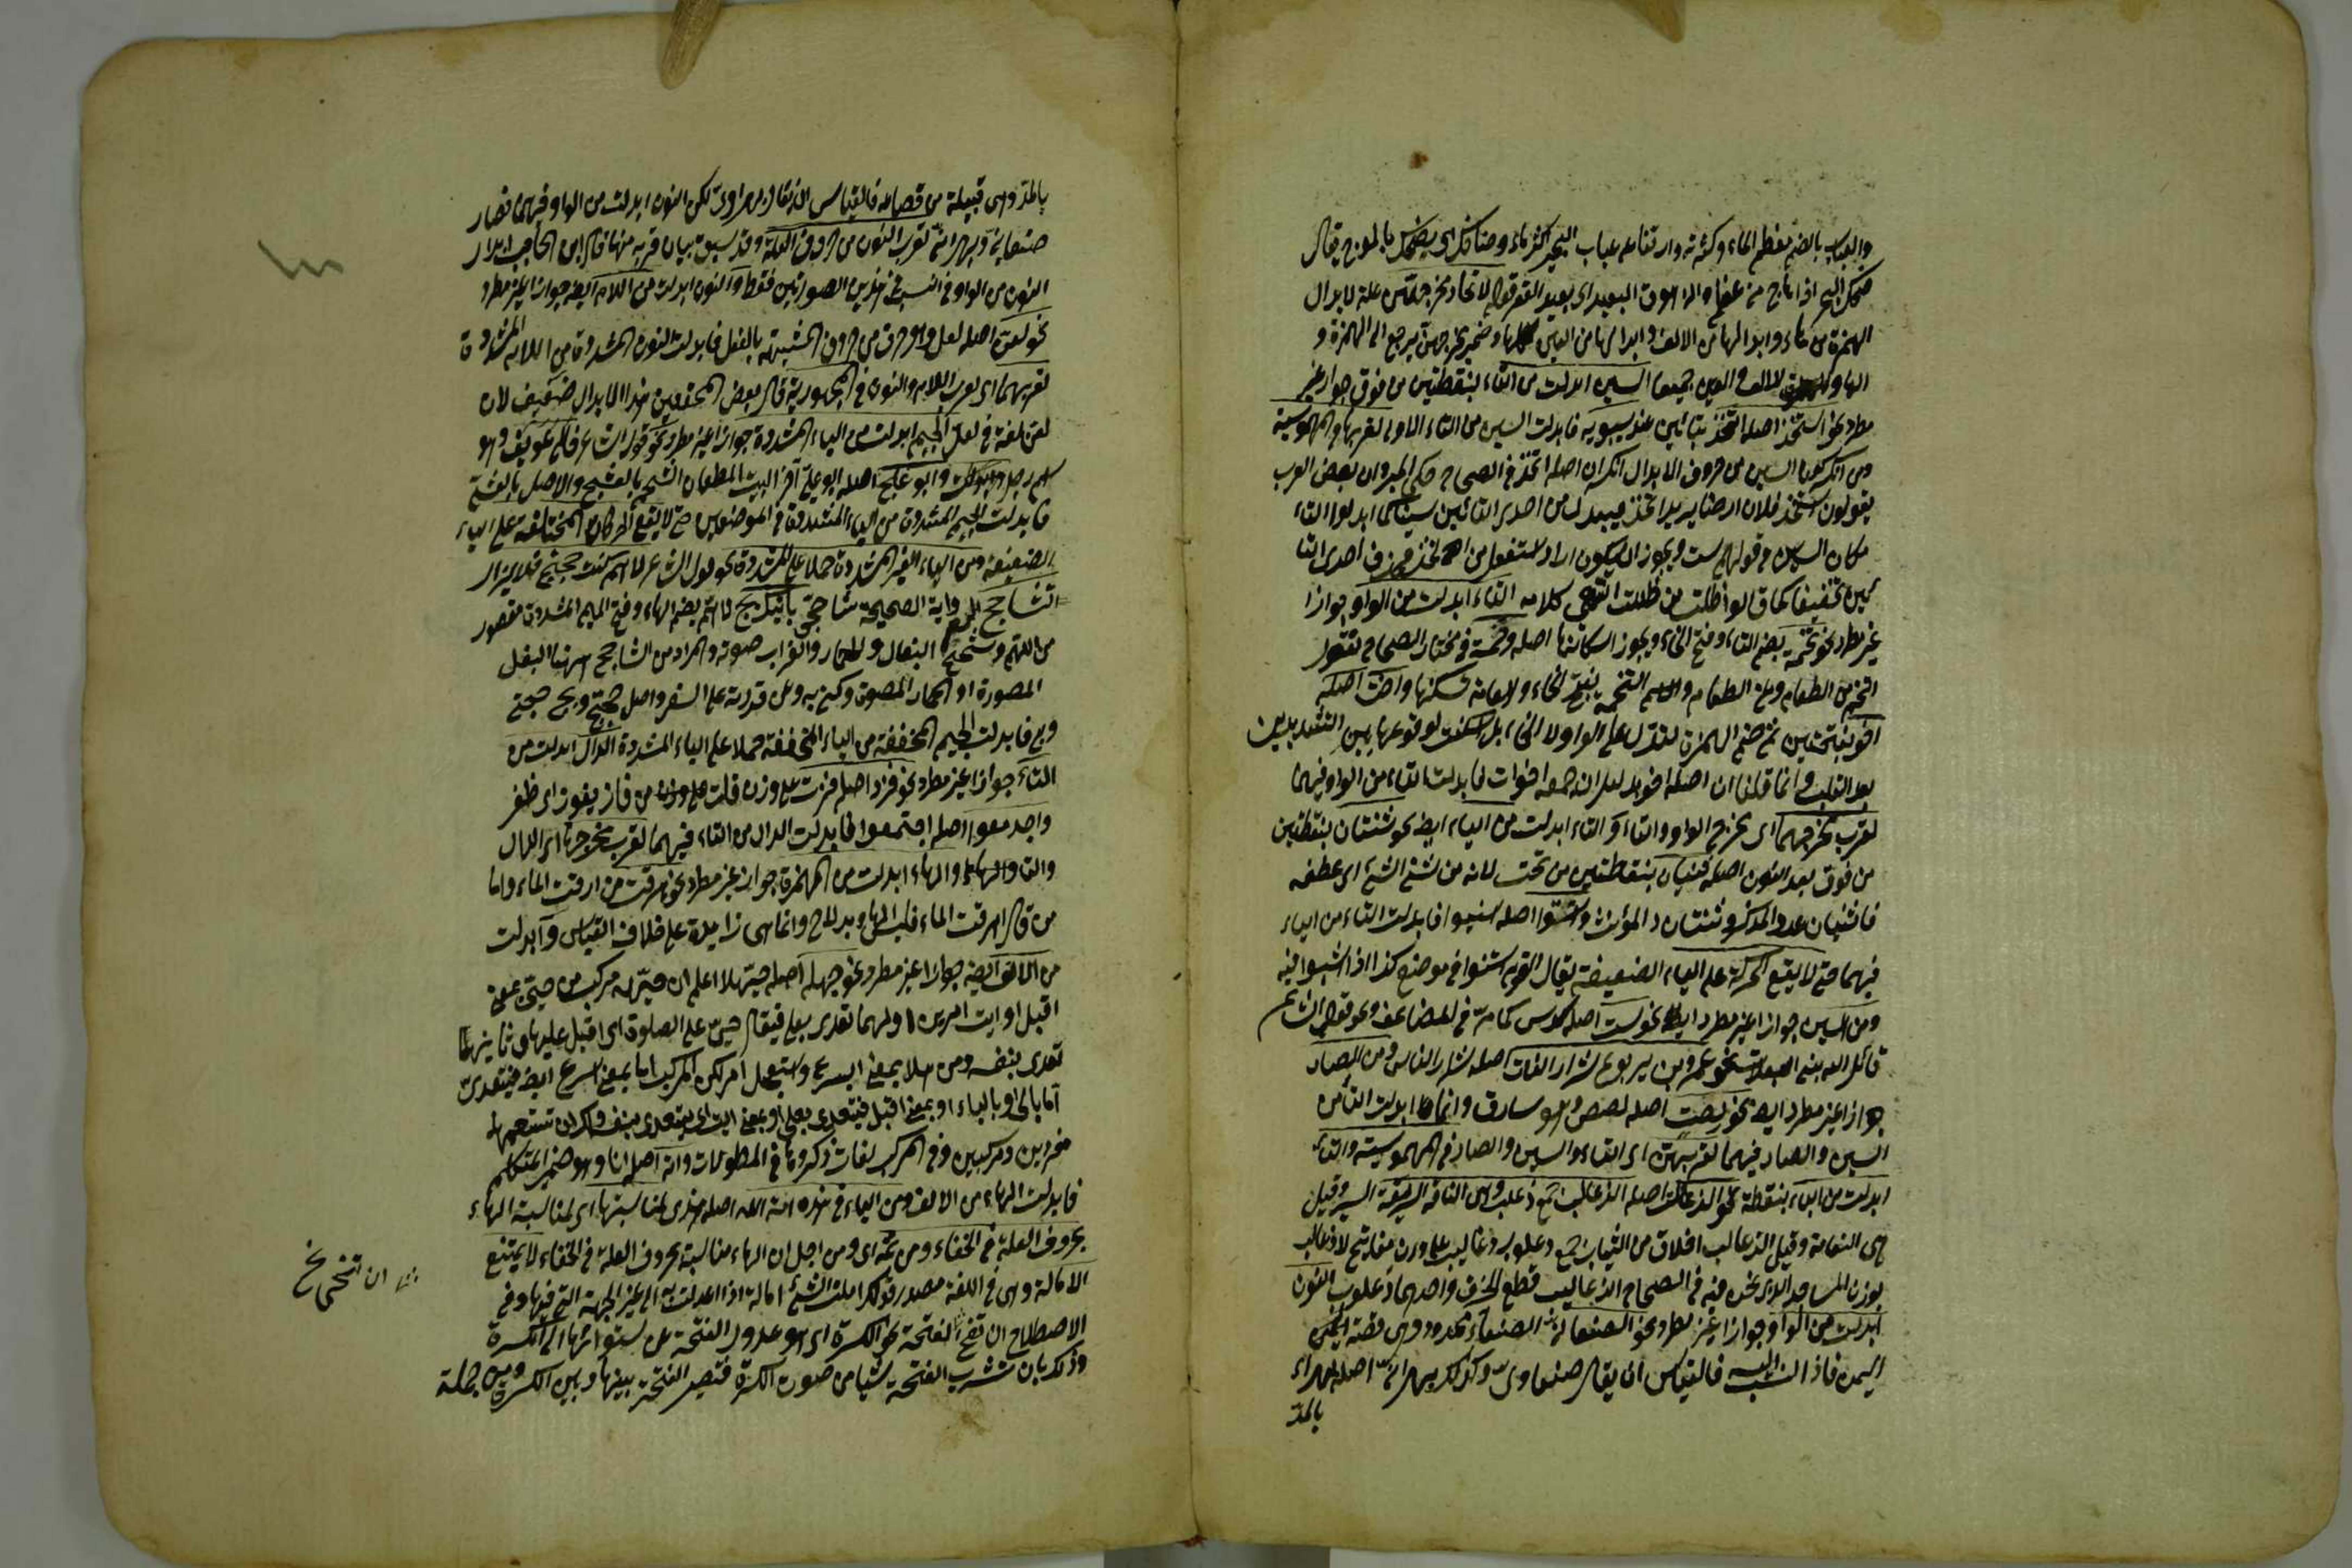 والعباب بالضم معظم الماء وكثرته وارتفاعه عباب البحر اكثر ماء وضاحك اى يضحك بالموج يقال
ضحك البحر اذا ماج من غير والزهوق البعيد اى بعيد القعر قوله لاتحاد مخرجهن علة لابدال
الهمزة من الهاء وابدالها من الالف وابدالها من العين وضمير مخرجهن يرجع الى الهمزة و
الهاء والالف والعين جميعا السين ابدلت من التاء بنقطتين من فوق جوازا غير
مطرد نحو استخذ اصله اتخذ بتائين عند سيبويه فابدلت السين من التاء الاولى لقربهما في المهموسية
ومن انكر كون السين من حروف الابدال انكر ان اصله اتخذ في الصحاح حكى المبرد ان بعض العرب
يقولون استخذ فلان ارضا يريد اتخذ فيبدل من احدى التائين سينا كما ابدلوا التاء
مكان السين في قولهم ست ويجوز ان يكون اراد استفعل من تخذ فحذف احدى التا
ئين تخفيفا كما قالوا ظلت من ظللت انتهى كلامه التاء ابدلت من الواو جوازا
غير مطرد نحو تخمة بضم التاء وفتح الخاء ويجوز اسكانها اصله وخمة في مختار الصحاح تقول
اتخم من الطعام وعن الطعام والاسم التخمة بفتح الخاء والعامة تسكنها واخت اصله
اخو بفتحتين ثم ضم الهمزة لتدل على الواو ولا الخاء بل اسكنت لوقوعها بين
بعد القلب وانما قلنا ان اصله اخو بدليل ان جمعه اخوات فابدلت التاء من الواو فيهما
لقرب مخرجهما اى مخرج الواو والتاء والتاء ابدلت من الياء ايضا نحو ثنتان بنقطتين
من فوق بعد النون اصله ثنيان بنقطتين من تحت لانه من ثنى الشئ اى عطفه
فاثنيان عدد المذكر وثنتان والمؤنث واسنتوا اصله اسنيوا فابدلت التاء من الياء
فيهما حتى لا يقع الحركة على الياء الضعيفة يقال القوم اسنتوا في موضع كذا اذا لبثوا فيه
ومن السين جوازا غير مطرد ايضا نحو ست اصله سدس كما مر في المضاعف ونحو قول الشاعر
قاتل الله بنى السعلات عمرو بن يربوع شرار النات اصله شرار الناس ومن الصاد
جوازا غير مطرد ايضا نحو لصت اصله لصص وهو سارق وانما ابدلت التاء من
السين والصاد فيهما لقربهن اى التاء والسين والصاد في المهموسية والتاء
ابدلت من الباء بنقطة نحو الذعالت اصله الذعالب جمع ذعلب وهى الناقة السريعة السير وقيل
هى النعامة وقيل الذعالب اخلاق من الثياب جمع ذعلوب وذعاليب على وزن مفاتيح لا ذعالب
بوزن المساجد الذى نحن فيه في الصحاح الذعاليب قطع الخرق واحدها ذعلوب النون
ابدلت من الواو جوازا غير مطرد نحو الصنعانى الصنعاء ممدود وهى قصبة
اليمن فاذا انتسب اليه فالقياس ان يقال صنعاوى وكذلك بهرانى اصله بهراء
بالمد
بالمد وهى قبيلة من قضاعة فالقياس ان يقال بهراوى لكن النون ابدلت من الواو فيهما فصار
صنعانى وبهرانى لقرب النون من حروف العلة وقد سبق بيان قربه منها قال ابن الحاجب ابدال
النون من الواو في النسب في هذين الصورتين فقط والنون ابدلت من اللام ايضا جوازا غير مطرد
نحو لعن اصله لعل وهو حرف من حروف المشبهة بالفعل فابدلت النون المشددة من اللام المشددة
لقربهما اى لقرب اللام والنون في المجهورية قال بعض المحققين هذا الابدال ضعيف لان
لعن لغة في لعل الجيم ابدلت من الياء المشددة جوازا غير مطرد نحو قول الشاعر خالى عويف وهو
اسم رجل وابو علج اصله ابو على آخر البيت المطعمان الشحم بالعشج والاصل بالعشى
فابدلت الجيم المشددة من الياء المشددة في الموضعين حتى لا يقع الحركات المختلفة على الياء
الضعيفة ومن الياء الغير المشددة حملا على المشددة نحو قول الشاعر لاهم ان كنت قبلت حجتج فلا يزال
شاحج الرواية الصحيحة شاحج يأتيك بج لاهم بضم الهاء وفتح الميم المشددة مقصور
من اللهم وشحيج البغال والحمار والغراب صوته والمراد من الشاحج ههنا البغل
المصورة او الحمار المصوت وكنى به وعن قدرته على السفر واصل حجتج وبج حجتى
وبى فابدلت الجيم المخففة من الياء المخففة حملا على الياء المشددة الدال ابدلت من
التاء جوازا غير مطرد نحو فزد اصله فزت على وزن قلت من فاز يفوز اى ظفر
واجدمعوا اصله اجتمعوا فابدلت الدال من التاء فيهما لقرب مخرجهما اى الدال
والتاء والهاء ابدلت من الهمزة جوازا غير مطرد نحو هرقت من ارقت الماء واما
من قال اهرقت الماء فليس الهاء ببدل وانما هى زايدة على خلاف القياس وابدلت
من الالف ايضا جوازا غير مطرد نحو حيهله اصله حيهلا اعلم ان حيهل مركب من حى بمعنى
اقبل او ايت امرين اولهما تعدى بعلى فيقال حى على الصلوة اى اقبل عليها وثانيهما
تعدى بنفسه ومن هلا بمعنى اسرع واستعجل امر لكن المركب اما بمعنى اسرع ايضا فيتعدى
اما بالى او بالباء او بمعنى اقبل فيتعدى بعلى او بمعنى ايت اى يتعدى بنفسه وكذا ان تستعملهما
مفردين ومركبين وفي المركب لغات ذكروها في المطولات وانه اصله انا وهو ضمير المتكلم
فابدلت الهاء من الالف ومن الياء في هذه امة الله اصله هذى لمناسبتها اى لمناسبة الهاء
بحروف العلة في الخفاء ومن ثمه اى ومن اجل ان الهاء مناسبة بحروف العلة في الخفاء لا يمتنع
الامالة وهى في اللغة مصدر قولك املت الشئ امالة اذا اعدلت به الى غير الجهة التى فيها وفي
الاصطلاح ان تنحى الفتحة نحو الكسرة اى هو عدول الفتحة عن استوائها الى الكسرة
وذلك بان تشرب الفتحة شيئا من صوت الكسرة فتصير الفتحة بينها وبين الكسرة ومن جملة
ان تنحى نخ